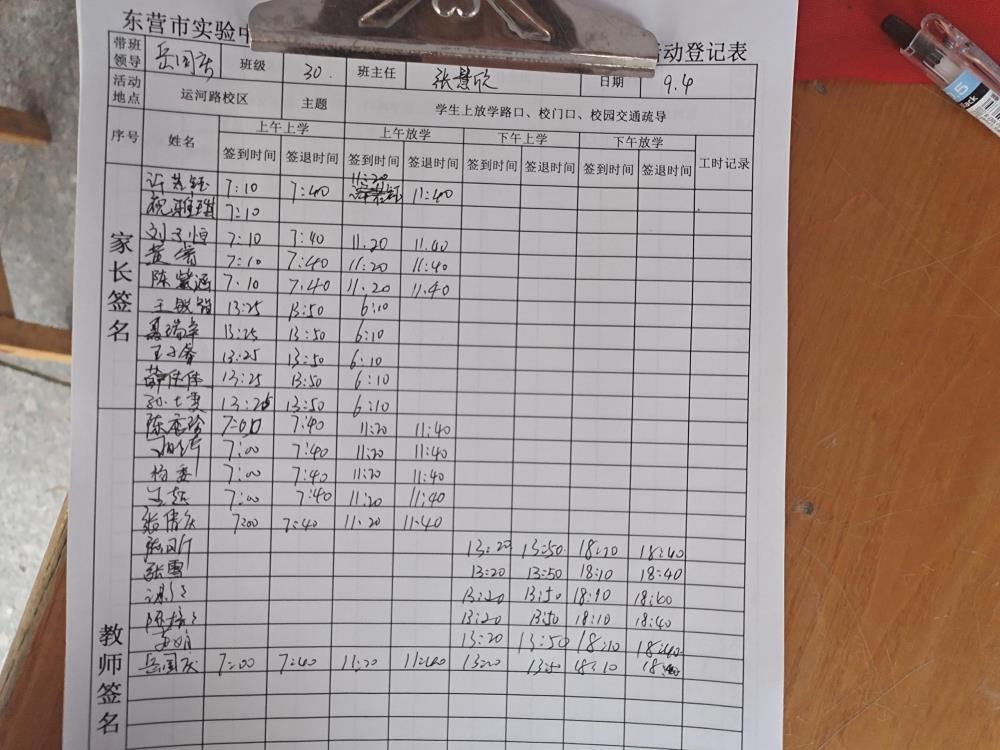 东营市实验中 活动登记表
带班领导 岳国庆 班级 30. 班主任 张慧欣 日期 9.4
活动地点 运河路校区 主题 学生上放学路口、校门口、校园交通疏导
序号 姓名 上午上学 上午放学 下午上学 下午放学 工时记录
签到时间 签退时间 签到时间 签退时间 签到时间 签退时间 签到时间 签退时间
家长签名
7:10 7:40 11:20 11:40
祝雅琪 7:10
刘子恒 7:10 7:40 11.20 11.40
黄睿 7:10 7:40 11:20 11:40
陈紫涵 7.10 7.40 11.20 11.40
13:25 13:50 6:10
13:25 13:50 6:10
王子睿 13:25 13:50 6:10
薛佳依 13:25 13:50 6:10
13:25 13:50 6:10
教师签名
7:00 7:40 11:20 11:40
7:00 7:40 11:20 11:40
杨委 7:00 7:40 11:20 11:40
7:00 7:40 11:20 11:40
7:00 7:40 11:20 11:40
13:20 13:50 18:10 18:40
张雪 13:20 13:50 18:10 18:40
13:20 13:50 18:10 18:40
13:20 13:50 18:10 18:40
13:20 13:50 18:10 18:40
岳国庆 7:00 7:40 11:20 11:40 13:20 13:50 18:10 18:40